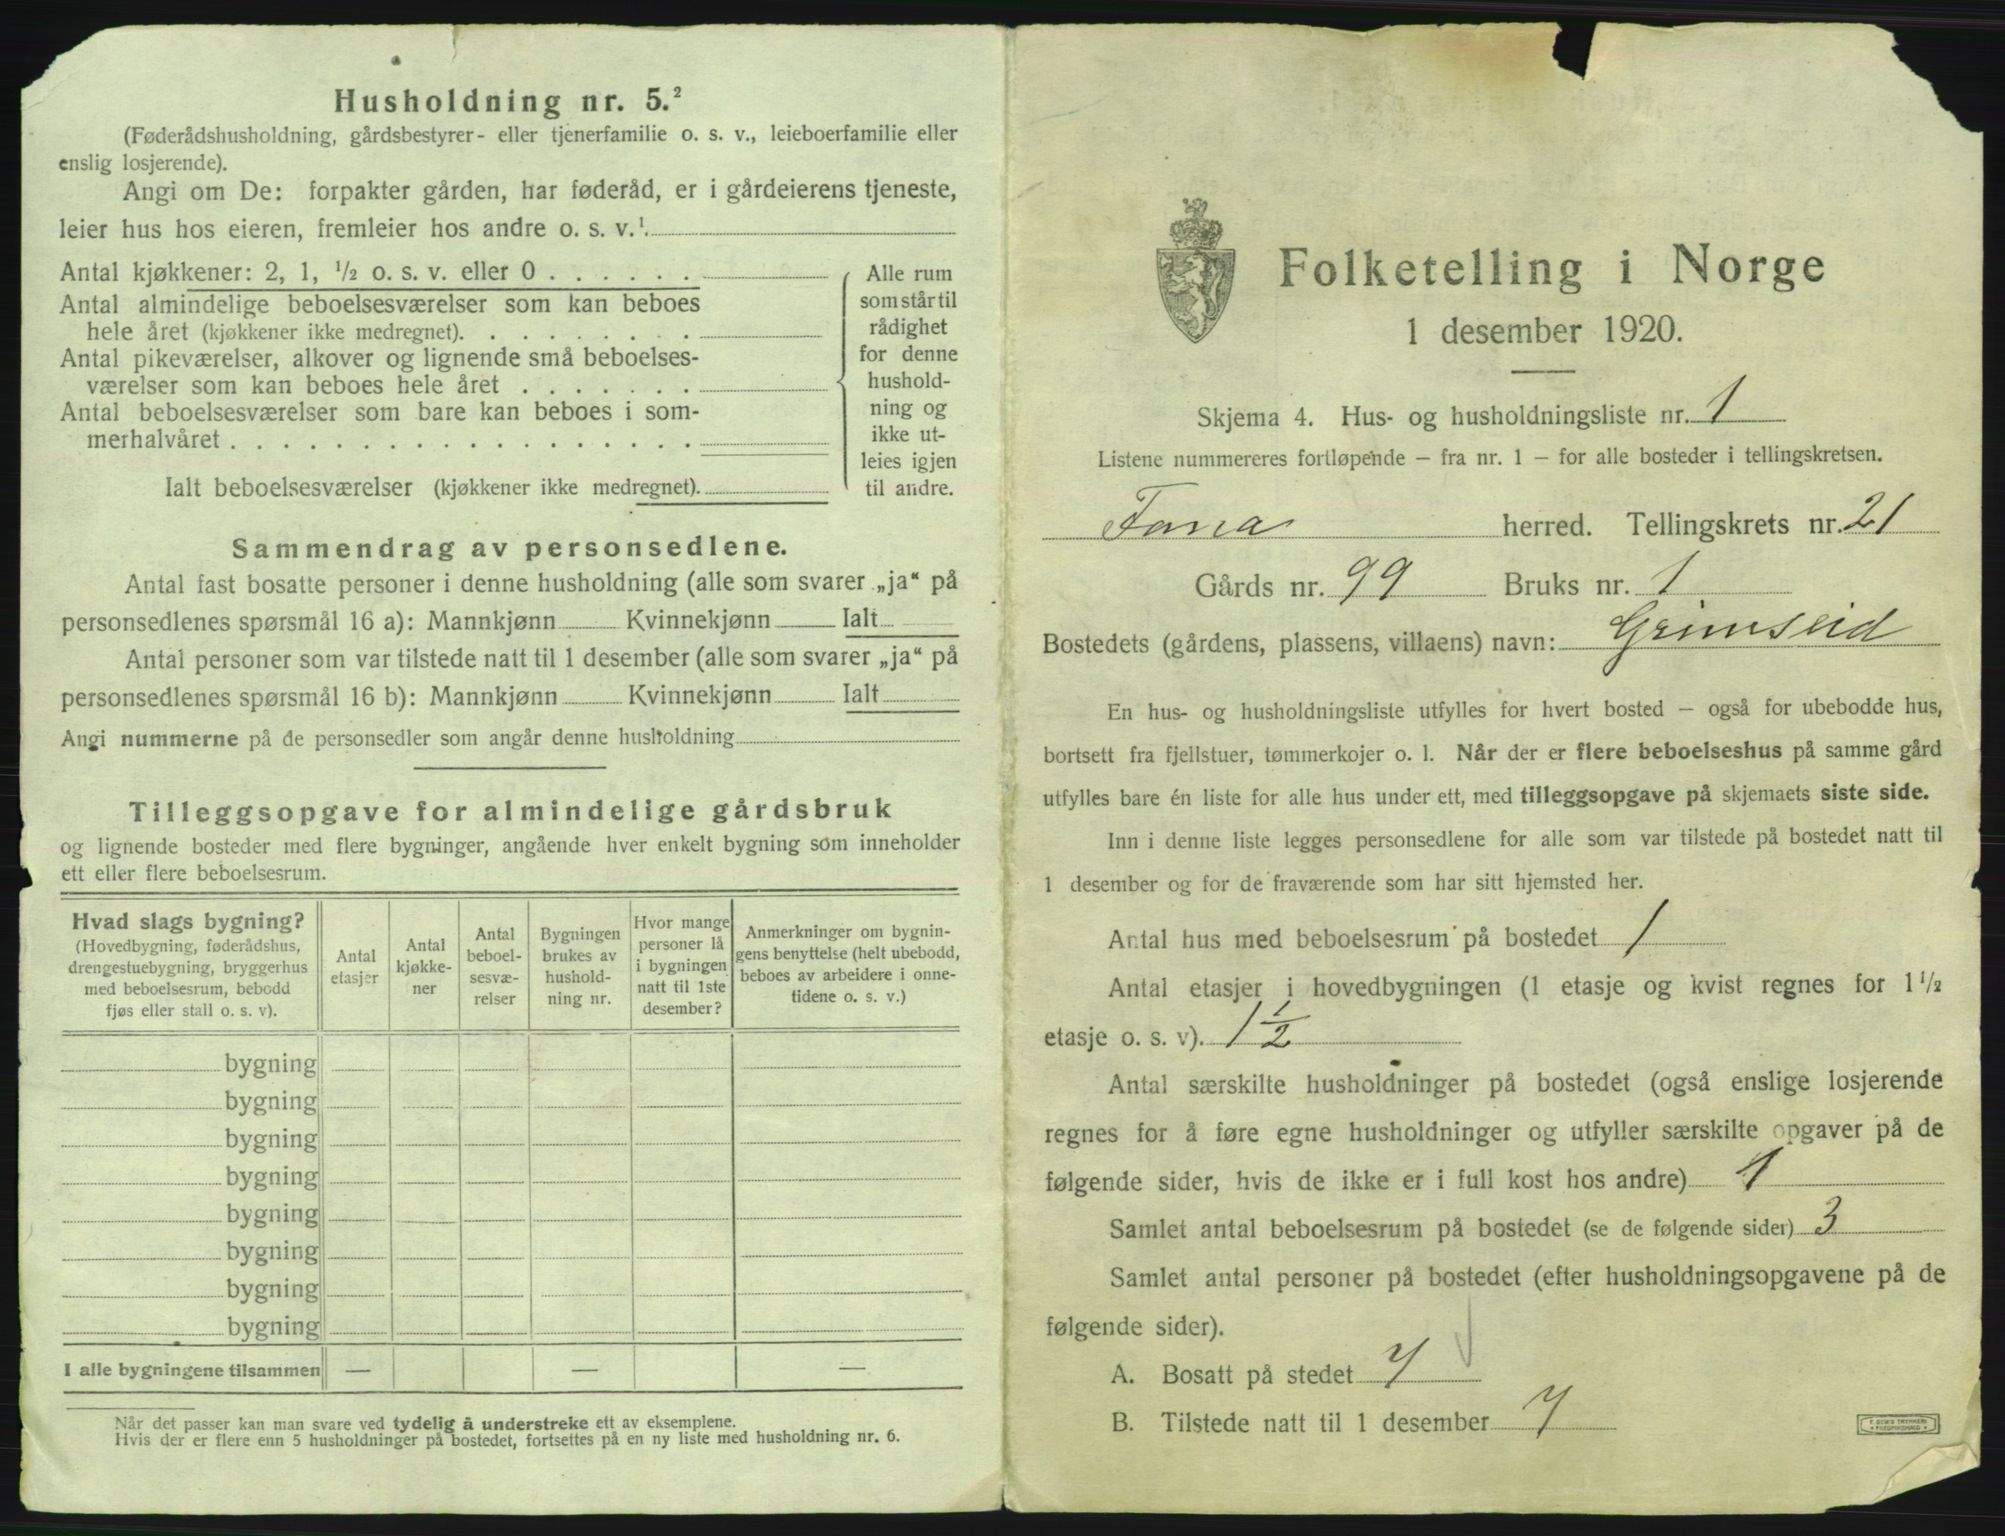 Husholdning nr. 5.²
(Føderådshusholdning, gårdsbestyrer- eller tjenerfamilie o. s. v., leieboerfamilie eller
enslig losjerende).
Angi om De: forpakter gården, har føderåd, er i gårdeierens tjeneste,
leier hus hos eieren, fremleier hos andre o. s. v.¹
Antal kjøkkener: 2, 1, ½ o. s. v. eller 0 . . . . . .
Antal almindelige beboelsesværelser som kan beboes
hele året (kjøkkener ikke medregnet). . . . . . . . .
Antal pikeværelser, alkover og lignende små beboelses-
værelser som kan beboes hele året . . . . . . .
Antal beboelsesværelser som bare kan beboes i som-
merhalvåret . . . . . . . . . . . . . . . . . .
Ialt beboelsesværelser (kjøkkener ikke medregnet).
Alle rum
som står til
rådighet
for denne
hushold-
ning og
ikke ut-
leies igjen
til andre.
Sammendrag av personsedlene.
Antal fast bosatte personer i denne husholdning (alle som svarer „ja“ på
personsedlenes spørsmål 16 a): Mannkjønn Kvinnekjønn Ialt
Antal personer som var tilstede natt til 1 desember (alle som svarer „ja“ på
personsedlenes spørsmål 16 b): Mannkjønn Kvinnekjønn Ialt
Angi nummerne på de personsedler som angår denne husholdning
Tilleggsopgave for almindelige gårdsbruk
og lignende bosteder med flere bygninger, angående hver enkelt bygning som inneholder
ett eller flere beboelsesrum.
Hvad slags bygning?
(Hovedbygning, føderådshus,
drengestuebygning, bryggerhus
med beboelsesrum, bebodd
fjøs eller stall o. s. v).
Antal
etasjer
Antal
kjøkke-
ner
Antal
beboel-
sesvæ-
relser
Bygningen
brukes av
hushold-
ning nr.
Hvor mange
personer lå
i bygningen
natt til 1ste
desember?
Anmerkninger om bygnin-
gens benyttelse (helt ubebodd,
beboes av arbeidere i onne-
tidene o. s. v.)
bygning
bygning
bygning
bygning
bygning
bygning
bygning
bygning
I alle bygningene tilsammen — — —
Når det passer kan man svare ved tydelig å understreke ett av eksemplene.
Hvis der er flere enn 5 husholdninger på bostedet, fortsettes på en ny liste med husholdning nr. 6.
Folketelling i Norge
1 desember 1920.
Skjema 4. Hus- og husholdningsliste nr. 1
Listene nummereres fortløpende – fra nr. 1 – for alle bosteder i tellingskretsen.
Fana herred. Tellingskrets nr. 21
Gårds nr. 99 Bruks nr. 1
Bostedets (gårdens, plassens, villaens) navn: Grimseid
En hus- og husholdningsliste utfylles for hvert bosted – også for ubebodde hus,
bortsett fra fjellstuer, tømmerkojer o. l. Når der er flere beboelseshus på samme gård
utfylles bare én liste for alle hus under ett, med tilleggsopgave på skjemaets siste side.
Inn i denne liste legges personsedlene for alle som var tilstede på bostedet natt til
1 desember og for de fraværende som har sitt hjemsted her.
Antal hus med beboelsesrum på bostedet 1
Antal etasjer i hovedbygningen (1 etasje og kvist regnes for 1½
etasje o. s. v). 1½
Antal særskilte husholdninger på bostedet (også enslige losjerende
regnes for å føre egne husholdninger og utfyller særskilte opgaver på de
følgende sider, hvis de ikke er i full kost hos andre) 1
Samlet antal beboelsesrum på bostedet (se de følgende sider) 3
Samlet antal personer på bostedet (efter husholdningsopgavene på de
følgende sider).
A. Bosatt på stedet 7
B. Tilstede natt til 1 desember 7